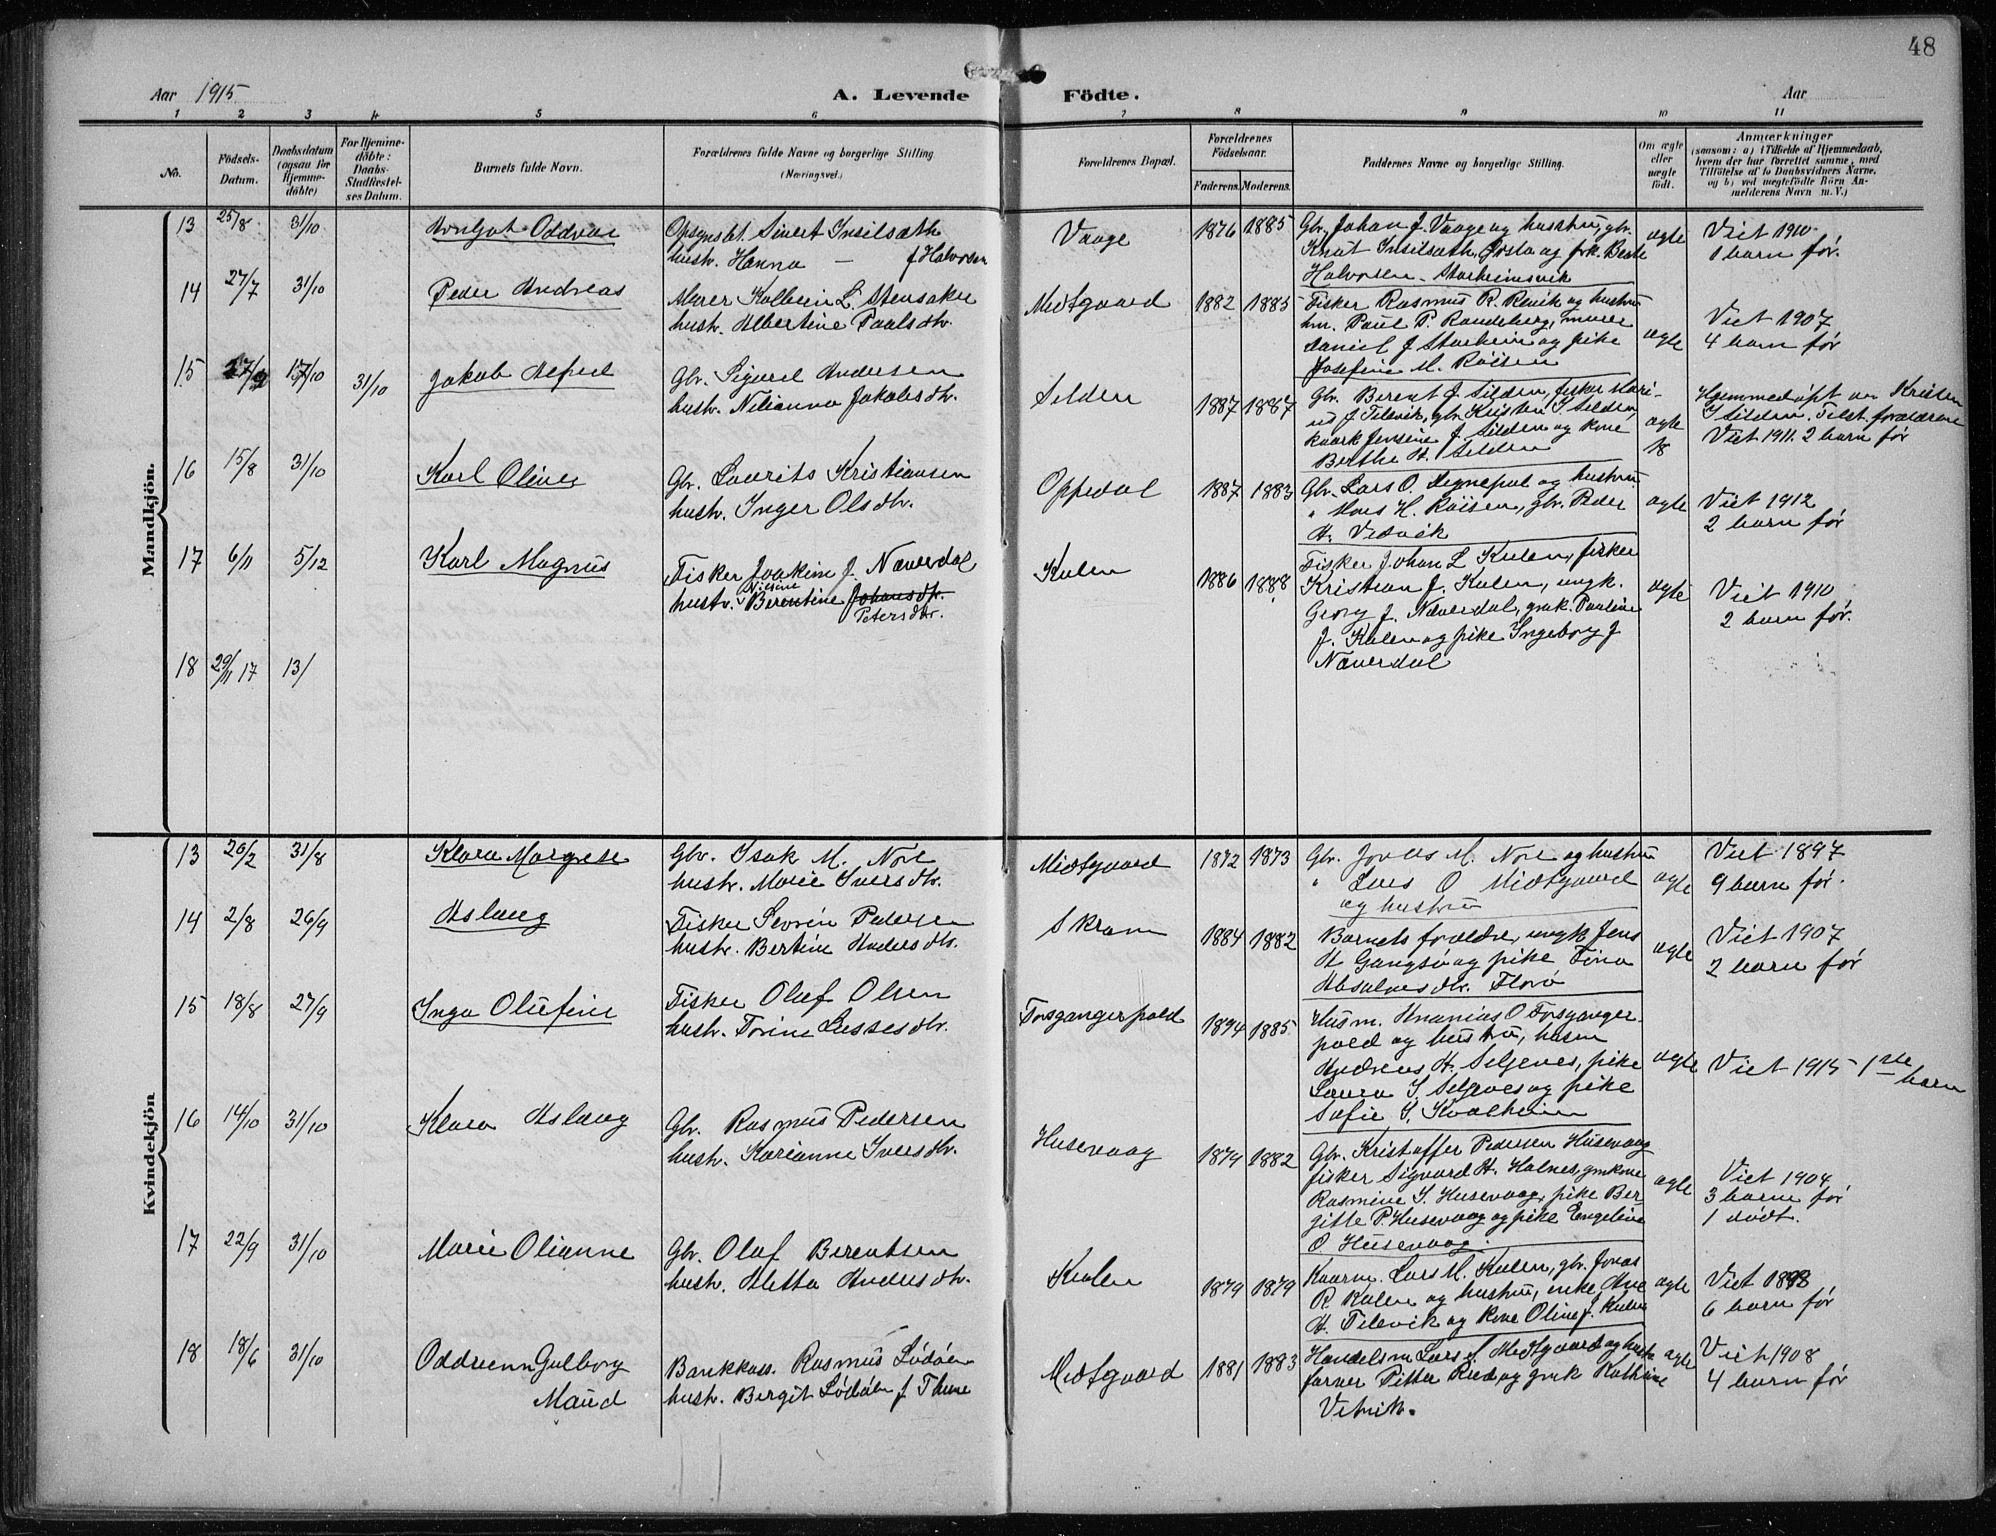 48
Aar 1915
A. Levende Födte.
Aar
1 2 3 4 5 6 7 8 9 10 11
No.
Födsels-Datum.
Daabsdatum (ogsaa for Hjemmedöbte)
For Hjemmedöbte: Daabs-Stadfæstelses Datum.
Barnets fulde Navn.
Forældrenes fulde Navne og borgerlige Stilling (Næringsvei.)
Forældrenes Bopæl.
Forældrenes Födselsaar.
Faderens. Moderens.
Faddernes Navne og borgerlige Stilling.
Om ægte eller uægte födt.
Anmærkninger
(saasom: a) i Tilfælde af Hjemmedaab, hvem der har forrettet samme, med Tilföielse af to Daabsvidners Navne, og b) ved uægtefödte Börn Anmelderens Navn m. V.)
Mandkjön.
13 25/8 31/10 Arnljot Oddvar
Opsynsbt. Sivert Insilsæth
hustr. Hanna — f Halvorsen
Vaage 1876 1885
Gbr. Johan J. Vaage og husstru, gbr.
Knut Insilsæth, Ørsta og frk. Beate
Halvorsen Starheimsvik
ægte
Viet 1910.
1 barn før.
14 27/7 31/10 Peder Andreas
Murer Kolbein L. Stensaker
hustr. Albertine Paulsdtr.
Midtgaard 1882 1885
Fisker Rasmus R. Revik og hustru
hm. Paul P. Raudeberg, murer
Daniel J Starheim og pike
Josefine M. Røisen
ægte
Viet 1907
4 barn før
15 27/9 17/10 31/10 Jakob Alfred
Gbr. Sigurd Andersen
hustr. Nilianna Jakobsdtr.
Silden 1887 1887
Gbr. Berent J. Silden, fisker Mari-
us J Tilevik, gbr. Kristen I Silden,
kaark Jensine J. Silden og kone
Berthe A. Silden
ægte
18
Hjemmedøpt av Kristen
I Silden. Tilst. forældrene
Viet 1911. 2 barn før
16 15/8 31/10 Karl Oliver
Gbr. Laurits Kristiansen
hustr. Inger Olsdtr.
Oppedal 1887 1883
Gbr. Lars O. Degnepol og hustru
" Hans H. Røisen, gbr. Peder
A. Vedvik
ægte
Viet 1912
2 barn før
17 6/11 5/12 Karl Magnus
Fisker Joakim J. Næverdal
Nilsine
hustr. Berentine Johansdtr.
Petersdtr.
Kulen 1886 1888
Fisker Johan L Kulen, fisker
Kristian J. Kulen, ungk.
Georg J. Næverdal, gmk. Pauline
J. Kulen og pike Ingeborg J
Næverdal
ægte
Viet 1910
2 barn før.
18 29/11 17 13/
Kvindekjön
13 26/2 31/8 Klara Margrete
Gbr. Isak M. Nore
hustr. Marie Iversdtr.
Midtgaard 1872 1873
Gbr. Jonas M. Nore og hustru
" Lars O Midtgaard
og hustru
ægte
Viet 1897
9 barn før.
14 2/8 26/9 Aslaug
Fisker Severin Pedersen
hustr. Bertine Andersdtr.
Skram 1884 1882
Barnets forældre, ungk Jens
A Gangsø og pike Fina
Absalnesdtr. Florø
ægte
Viet 1907
2 barn før
15 18/8 27/9 Inga Olufine
Fisker Oluf Olsen
hustr. Torine Lassesdtr.
Torsgangerpold 1894 1885
Husm. Ananias O Torsganger-
pold og hustru, husm
Andreas A. Seljenes, pike
Laura I. Seljenes og pike
Sofie S. Kvalheim
ægte
Viet 1915 1ste
barn
16 14/10 31/10 Klara Aslaug
Gbr. Rasmus Pedersen
hustr. Karianne Iversdtr.
Husevaag 1879 1882
Gbr. Kristoffer Pedersen Husevaag
fisker Sigvard A. Halnes, gmkone
Rasmine S. Husevaag, pike Ber-
gitte P. Husevaag og pike Engeline
O Husevaag.
ægte
Viet 1904
3 barn før
1 dødt.
17 22/9 31/10 Marie Olianne
Gbr. Olaf Berentsen
hustr. Aletta Andersdtr.
Kulen 1879 1879
Kaarm. Lars M. Kulen, gbr. Jonas
R. Kulen og hustru, enke Ane
A. Tilevik og kone Oline J. Kulen
ægte
Viet 1898
6 barn før
18 18/6 31/10 Oddrunn Gulborg
Maud
Bankkass. Rasmus Lødøen
hustr. Bergit Lødøen f Thine
Midtgaard 1881 1883
Handelsm Lars A. Midtgaard og hustru
farver Pitter Rued og gmk Kathrine
Vetvik.
ægte
Viet 1908
4 barn før